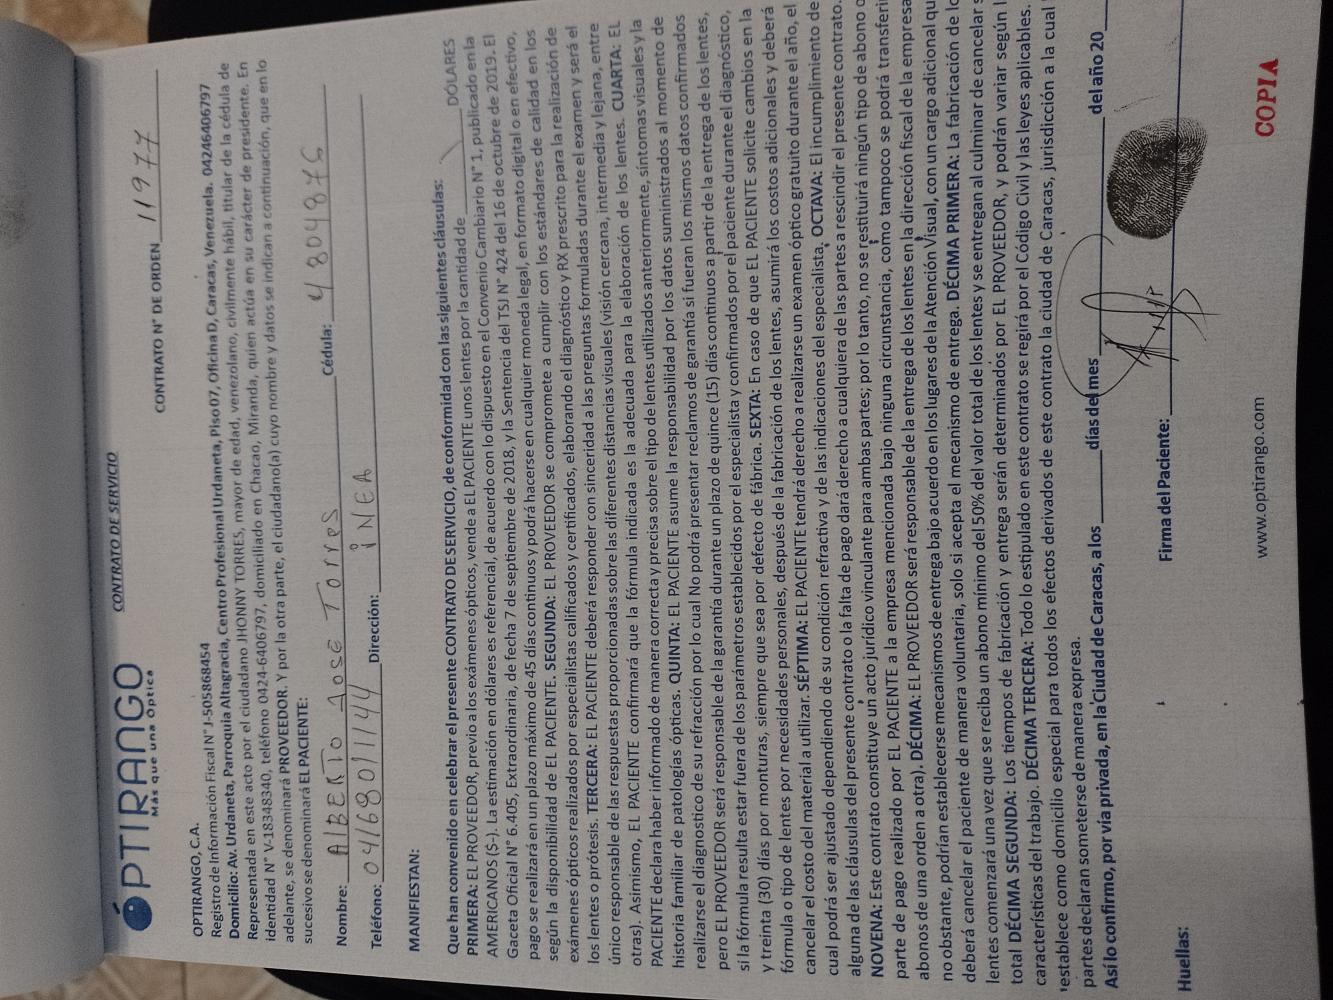 ÓPTIRANGO
Más que una Óptica
CONTRATO DE SERVICIO
CONTRATO N° DE ORDEN 11977
OPTIRANGO, C.A.
Registro de Información Fiscal N° J-505868454
Domicilio: Av. Urdaneta, Parroquia Altagracia, Centro Profesional Urdaneta, Piso 07, Oficina D, Caracas, Venezuela. 04246406797
Representada en este acto por el ciudadano JHONNY TORRES, mayor de edad, venezolano, civilmente hábil, titular de la cédula de
identidad N° V-18348340, teléfono 0424-6406797, domiciliado en Chacao, Miranda, quien actúa en su carácter de presidente. En
adelante, se denominará PROVEEDOR. Y por la otra parte, el ciudadano(a) cuyo nombre y datos se indican a continuación, que en lo
sucesivo se denominará EL PACIENTE:
Nombre: AlBERTO JOSE Torres Cédula: 4804876
Teléfono: 04168011144 Dirección: iNEA
MANIFIESTAN:
Que han convenido en celebrar el presente CONTRATO DE SERVICIO, de conformidad con las siguientes cláusulas:
PRIMERA: EL PROVEEDOR, previo a los exámenes ópticos, vende a EL PACIENTE unos lentes por la cantidad de DÓLARES
AMERICANOS ($-). La estimación en dólares es referencial, de acuerdo con lo dispuesto en el Convenio Cambiario N° 1, publicado en la
Gaceta Oficial N° 6.405, Extraordinaria, de fecha 7 de septiembre de 2018, y la Sentencia del TSJ N° 424 del 16 de octubre de 2019. El
pago se realizará en un plazo máximo de 45 días continuos y podrá hacerse en cualquier moneda legal, en formato digital o en efectivo,
según la disponibilidad de EL PACIENTE. SEGUNDA: EL PROVEEDOR se compromete a cumplir con los estándares de calidad en los
exámenes ópticos realizados por especialistas calificados y certificados, elaborando el diagnóstico y RX prescrito para la realización de
los lentes o prótesis. TERCERA: EL PACIENTE deberá responder con sinceridad a las preguntas formuladas durante el examen y será el
único responsable de las respuestas proporcionadas sobre las diferentes distancias visuales (visión cercana, intermedia y lejana, entre
otras). Asimismo, EL PACIENTE confirmará que la fórmula indicada es la adecuada para la elaboración de los lentes. CUARTA: EL
PACIENTE declara haber informado de manera correcta y precisa sobre el tipo de lentes utilizados anteriormente, síntomas visuales y la
historia familiar de patologías ópticas. QUINTA: EL PACIENTE asume la responsabilidad por los datos suministrados al momento de
realizarse el diagnostico de su refracción por lo cual No podrá presentar reclamos de garantía si fueran los mismos datos confirmados
pero EL PROVEEDOR será responsable de la garantía durante un plazo de quince (15) días continuos a partir de la entrega de los lentes,
si la fórmula resulta estar fuera de los parámetros establecidos por el especialista y confirmados por el paciente durante el diagnóstico,
y treinta (30) días por monturas, siempre que sea por defecto de fábrica. SEXTA: En caso de que EL PACIENTE solicite cambios en la
fórmula o tipo de lentes por necesidades personales, después de la fabricación de los lentes, asumirá los costos adicionales y deberá
cancelar el costo del material a utilizar. SÉPTIMA: EL PACIENTE tendrá derecho a realizarse un examen óptico gratuito durante el año, el
cual podrá ser ajustado dependiendo de su condición refractiva y de las indicaciones del especialista. OCTAVA: El incumplimiento de
alguna de las cláusulas del presente contrato o la falta de pago dará derecho a cualquiera de las partes a rescindir el presente contrato.
NOVENA: Este contrato constituye un acto jurídico vinculante para ambas partes; por lo tanto, no se restituirá ningún tipo de abono o
parte de pago realizado por EL PACIENTE a la empresa mencionada bajo ninguna circunstancia, como tampoco se podrá transferir
abonos de una orden a otra), DÉCIMA: EL PROVEEDOR será responsable de la entrega de los lentes en la dirección fiscal de la empresa
no obstante, podrían establecerse mecanismos de entrega bajo acuerdo en los lugares de la Atención Visual, con un cargo adicional qu
deberá cancelar el paciente de manera voluntaria, solo si acepta el mecanismo de entrega. DÉCIMA PRIMERA: La fabricación de lo
lentes comenzará una vez que se reciba un abono mínimo del 50% del valor total de los lentes y se entregan al culminar de cancelar s
total DÉCIMA SEGUNDA: Los tiempos de fabricación y entrega serán determinados por EL PROVEEDOR, y podrán variar según l
características del trabajo. DÉCIMA TERCERA: Todo lo estipulado en este contrato se regirá por el Código Civil y las leyes aplicables.
establece como domicilio especial para todos los efectos derivados de este contrato la ciudad de Caracas, jurisdicción a la cual
partes declaran someterse de manera expresa.
Así lo confirmo, por vía privada, en la Ciudad de Caracas, a los días del mes del año 20
Huellas: Firma del Paciente:
www.optirango.com
COPIA